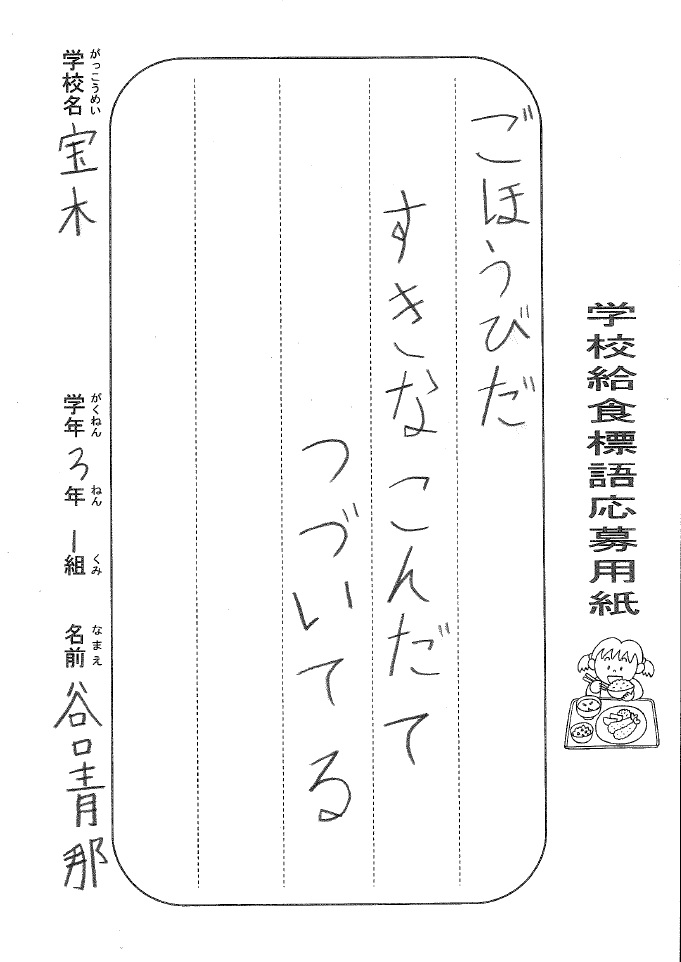 学校給食標語応募用紙
ごほうびだ
すきなこんだて
つづいてる
学校名 宝木 学年 3年 1組 名前 谷口青那
がっこうめい がくねん ねん くみ なまえ